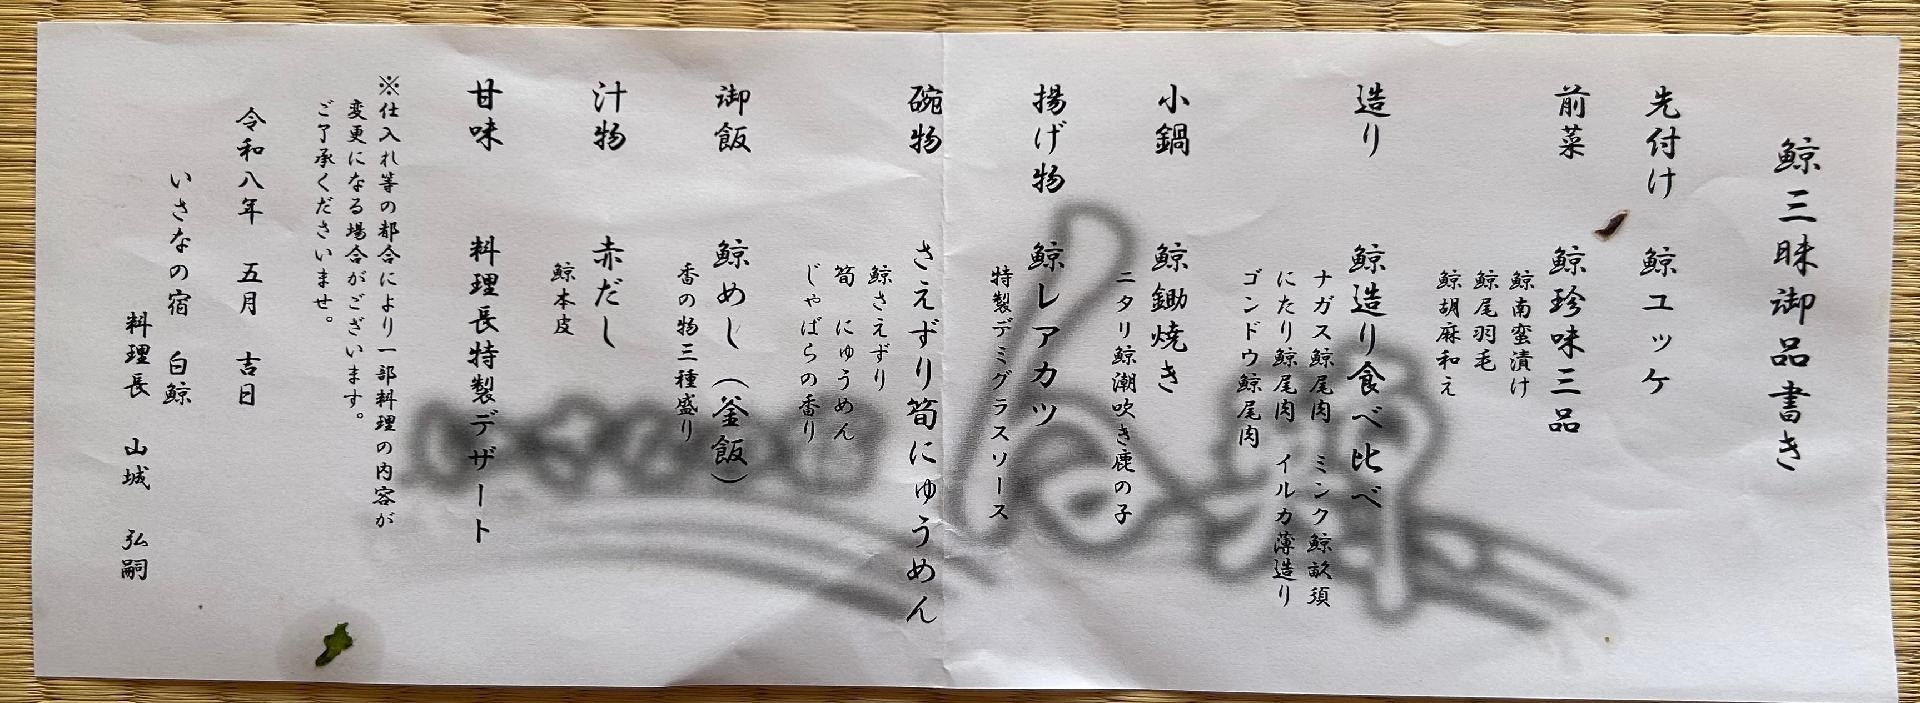 鯨三昧御品書き
先付け　鯨ユッケ
前菜　鯨珍味三品
鯨南蛮漬け
鯨尾羽毛
鯨胡麻和え
造り　鯨造り食べ比べ
ナガス鯨尾肉　ミンク鯨畝須
にたり鯨尾肉　イルカ薄造り
ゴンドウ鯨尾肉
小鍋　鯨鋤焼き
ニタリ鯨潮吹き鹿の子
揚げ物　鯨レアカツ
特製デミグラスソース
碗物　さえずり筍にゅうめん
鯨さえずり
筍　にゅうめん
じゃばらの香り
御飯　鯨めし（釜飯）
香の物三種盛り
汁物　赤だし
鯨本皮
甘味　料理長特製デザート
※仕入れ等の都合により一部料理の内容が
変更になる場合がございます。
ご了承くださいませ。
令和八年　五月　吉日
いさなの宿　白鯨
料理長　山城　弘嗣